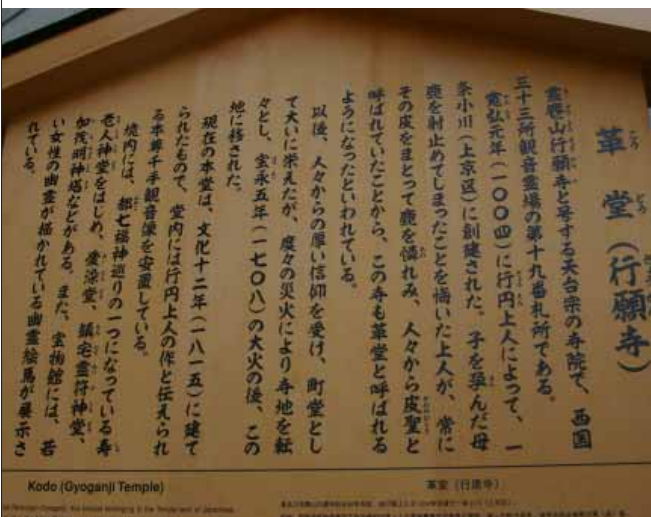 革堂（行願寺）
霊麀山行願寺と号する天台宗の寺院で、西国
三十三所観音霊場の第十九番札所である。
寛弘元年（一〇〇四）に行円上人によって、一
条小川（上京区）に創建された。子を孕んだ母
鹿を射止めてしまったことを悔いた上人が、常に
その皮をまとって鹿を憐れみ、人々から皮聖と
呼ばれていたことから、この寺も革堂と呼ばれる
ようになったといわれている。
以後、人々からの厚い信仰を受け、町堂とし
て大いに栄えたが、度々の災火により寺地を転
々とし、宝永五年（一七〇八）の大火の後、この
地に移された。
現在の本堂は、文化十二年（一八一五）に建て
られたもので、堂内には行円上人の作と伝えられ
る本尊千手観音像を安置している。
境内には、都七福神巡りの一つになっている寿
老人神堂をはじめ、愛染堂、鎮宅霊符神堂、
加茂明神塔などがある。また、宝物館には、若
い女性の幽霊が描かれている幽霊絵馬が展示さ
れている。
Kodo (Gyoganji Temple)
革堂（行願寺）